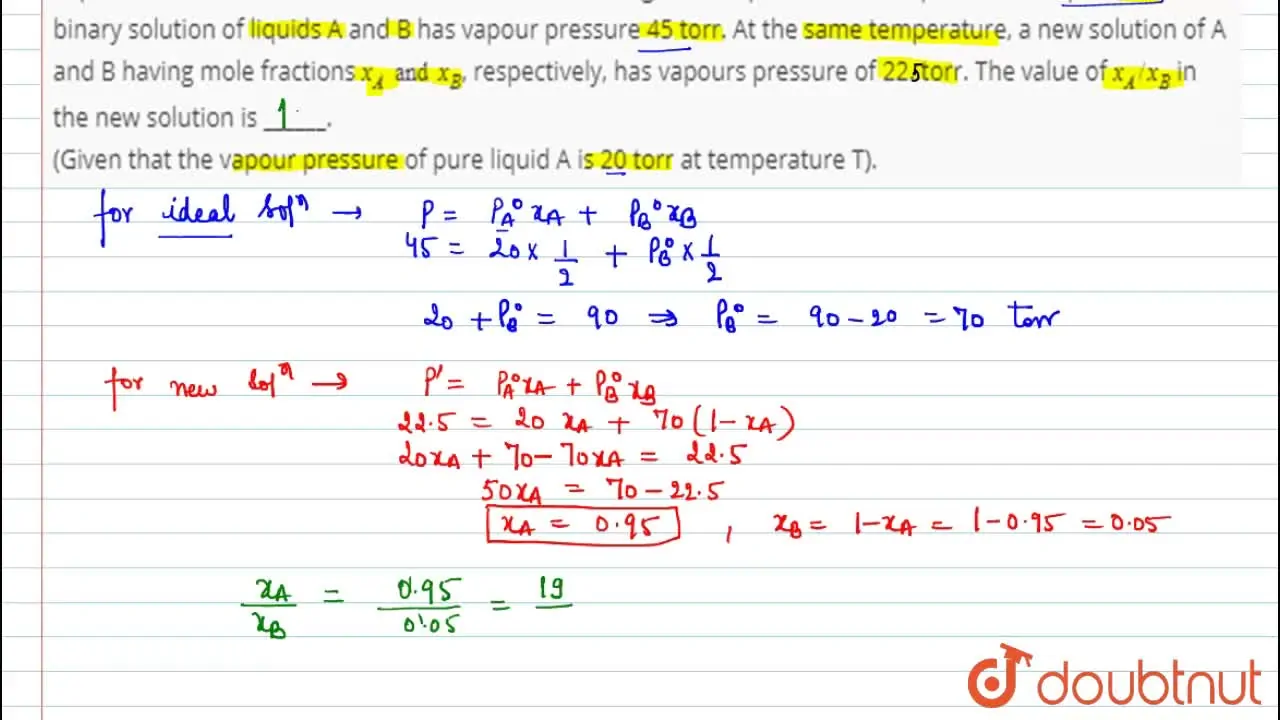 binary solution of liquids A and B has vapour pressure 45 torr. At the same temperature, a new solution of A
and B having mole fractions x_A and x_B, respectively, has vapours pressure of 22.5torr. The value of x_A/x_B in
the new solution is __1__.
(Given that the vapour pressure of pure liquid A is 20 torr at temperature T).
for ideal Solⁿ → P = P_A° x_A + P_B° x_B
45 = 20 × 1/2 + P_B° × 1/2
20 + P_B° = 90 ⇒ P_B° = 90 - 20 = 70 Torr
for new Solⁿ → P' = P_A° x_A + P_B° x_B
22.5 = 20 x_A + 70 (1 - x_A)
20x_A + 70 - 70x_A = 22.5
50x_A = 70 - 22.5
x_A = 0.95 , x_B = 1 - x_A = 1 - 0.95 = 0.05
x_A/x_B = 0.95/0.05 = 19
doubtnut